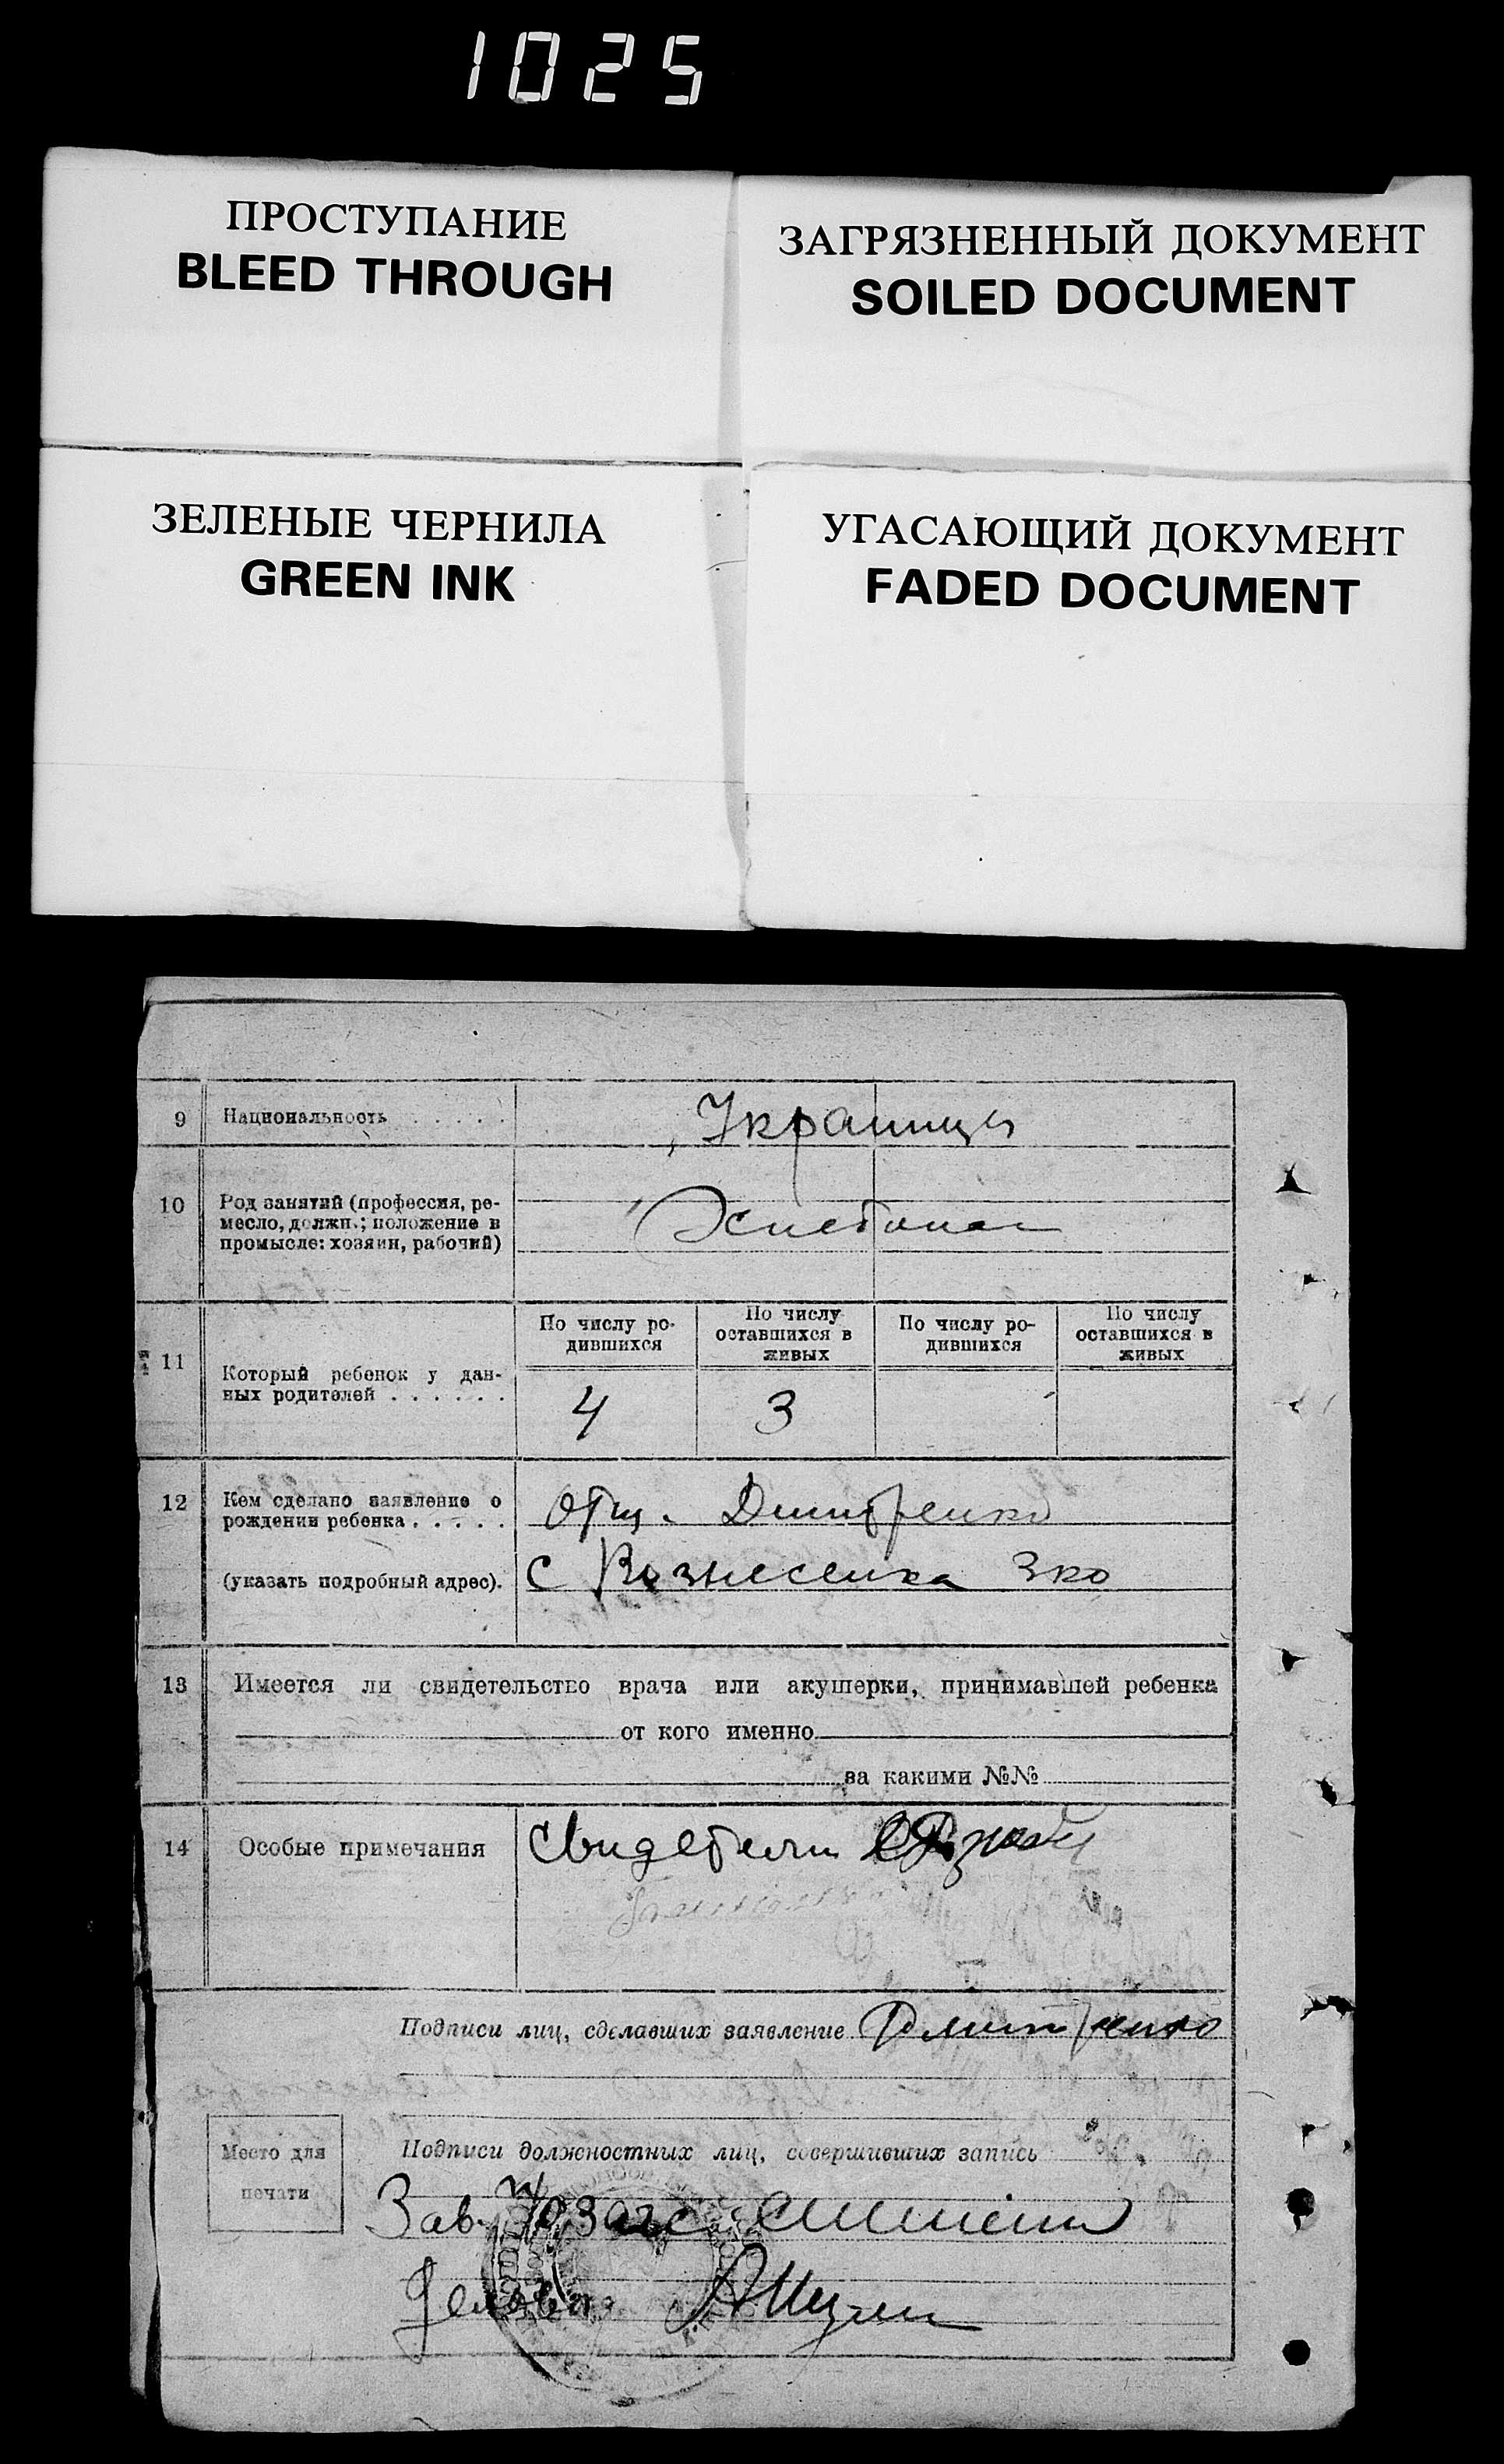 1025
ПРОСТУПАНИЕ
BLEED THROUGH
ЗАГРЯЗНЕННЫЙ ДОКУМЕНТ
SOILED DOCUMENT
ЗЕЛЕНЫЕ ЧЕРНИЛА
GREEN INK
УГАСАЮЩИЙ ДОКУМЕНТ
FADED DOCUMENT
9 Национальность . . . . . Украинцы
10 Род занятий (профессия, ре-
месло, должн.; положение в
промысле: хозяин, рабочий)
11 Который ребенок у дан-
ных родителей . . . . . .
По числу ро-
дившихся
По числу
оставшихся в
живых
По числу ро-
дившихся
По числу
оставшихся в
живых
4 3
12 Кем сделано заявление о
рождении ребенка . . . . .
Отц. Дмитренко
(указать подробный адрес).
С Вознесенка Зко
13 Имеется ли свидетельство врача или акушерки, принимавшей ребенка
от кого именно
за какими №№
14 Особые примечания Свидетели
Подписи лиц, сделавших заявление Дмитренко
Место для
печати
Подписи должностных лиц, совершивших запись
Зав.